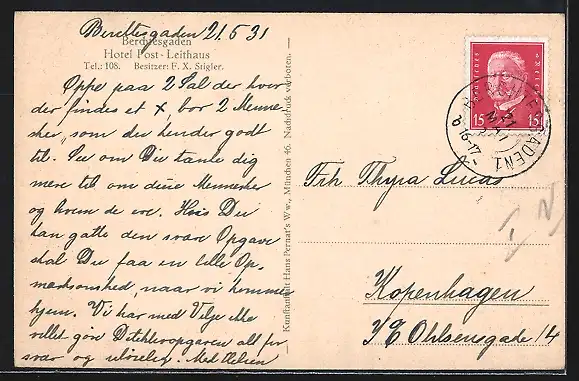 Berchtesgaden 21.5.31
Berchtesgaden
Hotel Post-Leithaus
Tel.: 108. Besitzer: F. X. Stigler.
Oppe paa 2 Sal der hvor
der findes et X, bor 2 Menne-
sker, som du kender godt
til. Se om Du tænke dig
mere til om disse Mennesker
og hvem de ere. Hvis Du
kan gætte den svære Opgave
skal Du faa en lille Op-
mærksomhed, naar vi kommer
hjem. Vi har med Vilje ikke
villet gøre Opgaven alt for
svær og uløselig. Med Hilsen
Kunstanstalt Hans Pernat's Ww., München 46. Nachdruck verboten.
DEUTSCHES REICH
15 15
16-17
Frk Thyra Lucas
Kopenhagen
J E Ohlsensgade 14